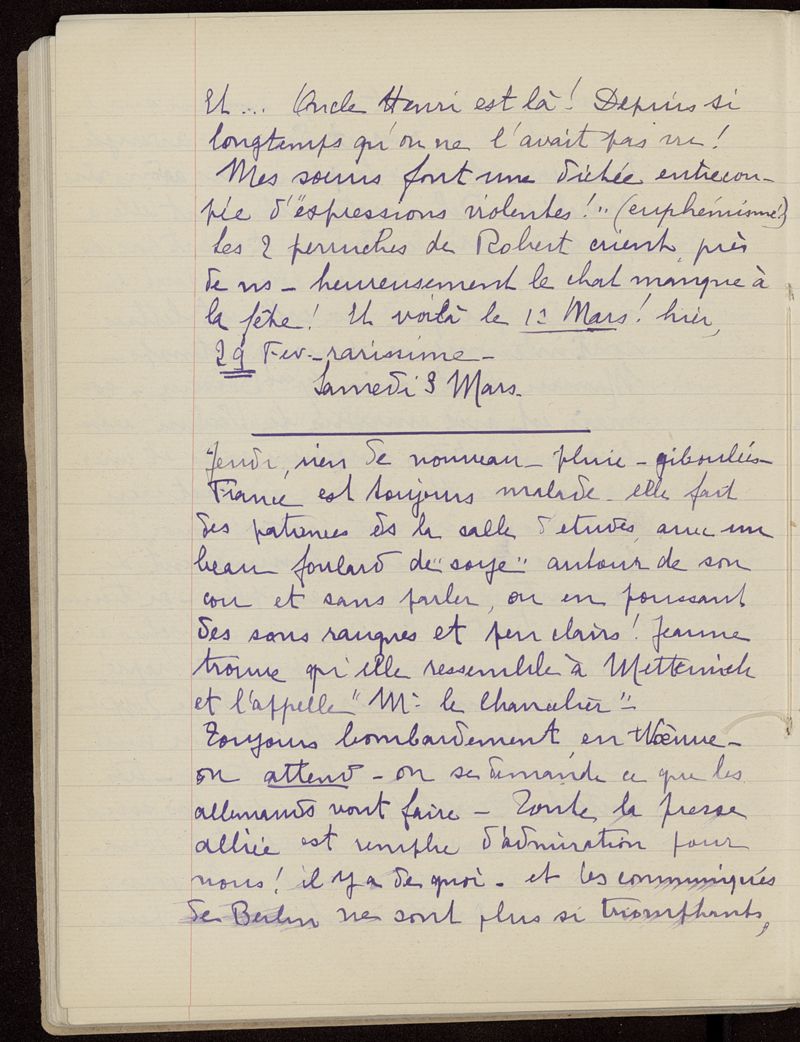 Et ... Oncle Henri est là! Depuis si
longtemps qu'on ne l'avait pas vu!
Mes sœurs font une dictée entrecou-
pée d'"expressions violentes!" (euphémisme!)
Les 2 perruches de Robert crient, près
de ns - heureusement le chat manque à
la fête! Et voilà le 1er Mars! hier,
29 Fev - rarissime -
Samedi 3 Mars.
Jeudi, rien de nouveau - pluie - giboulées -
France est toujours malade - elle fait
des patiences ds la salle d'études, avec un
beau foulard de "soye" autour de son
cou et sans parler, ou en poussant
des sons rauques et peu clairs! Jeanne
trouve qu'elle ressemble à Metternich
et l'appelle "Mr le Chancelier" -
Toujours bombardement, en Woëvre -
on attend - on se demande ce que les
allemands vont faire - Toute la presse
alliée est remplie d'admiration pour
nous! il y a de quoi - et les communiqués
de Berlin ne sont plus si triomphants,